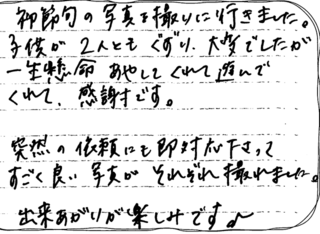 初節句の写真を撮りに行きました。
子供が2人ともぐずり、大変でしたが
一生懸命あやしてくれて遊んで
くれて、感謝です。
突然の依頼にも即対応下さって
すごく良い写真がそれぞれ撮れました。
出来あがりが楽しみです♪